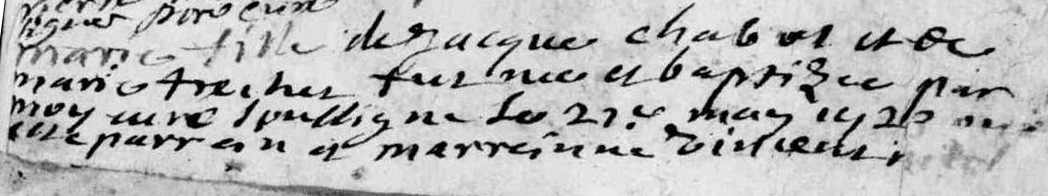 marie fille de Jacque chabot et de
marie trecher fut nee et baptizee par
moy curé soussigne le 27e may 1726
este parrain et marreinne vincent